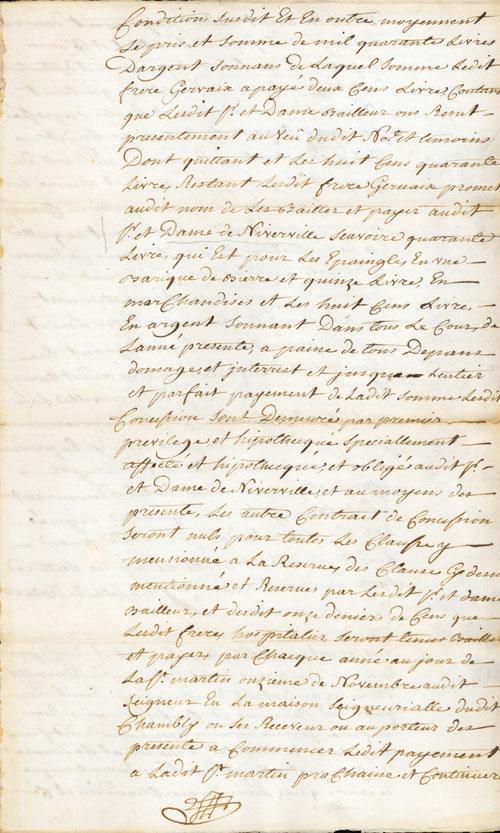 Conditions susdit Et En outre, moyennent
Le pris et somme de mil quarante Livres
Dargent sonnans de Laquel somme Ledit
frere Gervaix a payé deux Cens Livre, Contant
que Lesdit Sr. et Dame Bailleur ons Reçut
presentement au veü dudit Nore. et temoins
Dont quittant et Les huit Cens quarante
Livre, Restant Lesdit frere Gervaix promet
audit nom de Les Bailler et payer audit
Sr. et Dame de Niverville scavoire quarante
Livre, qui Est pour Les Epaingle, En une
Barique de Bierre et quinze Livre, En
marChandises et Les huit Cens Livre,
En argent Sonnant Dans tous Le Cour, de
Lanné presente, a paine de tous Depans
domage, et interrest et jusque Lentier
et parfait payement de Ladit Somme Lesdit
Concession sont Demeuré par premier
previlege et hipotheque speciallement
affecté et hipothequé, et obligé audit Sr.
et Dame de Niverville, et au moyens des
presente, Les autre Contrait de Concession
seront nuls pour toutes Les Clause, y
mensionné a La Reserve, des Clause Cy desu
mentionné et Reserves par Lesdit Sr. et dame
Bailleur, et dudit onze deniers de Cens que
Lesdit frere, hospitalier seront tenus Bailler
et payer, par Chacque anné au jour de
La St. martin onzieme de Novembre audit
Seigneur En La maison Seigneurialle dudit
Chambly ou Ses Receveur ou au porteur des
presente a Commencer Ledit payement
a Ladit St. martin pro Chaine et Continuer